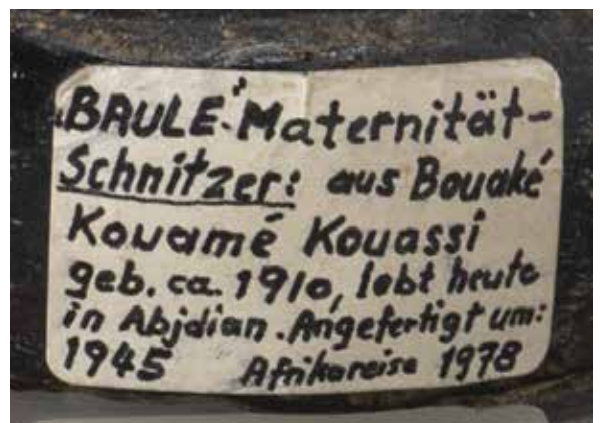 "BAULE"-Maternität-
Schnitzer: aus Bouaké
Kouamé Kouassi
geb. ca. 1910, lebt heute
in Abjdian. Angefertigt um:
1945 Afrikareise 1978